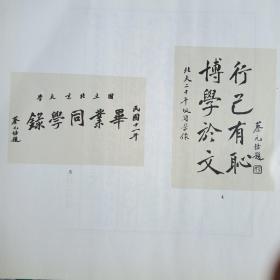 行己有恥
博學於文
北大二十年級同學錄
蔡元培題
4
民國十一年
國立北京大學
畢業同學錄
蔡元培題
5